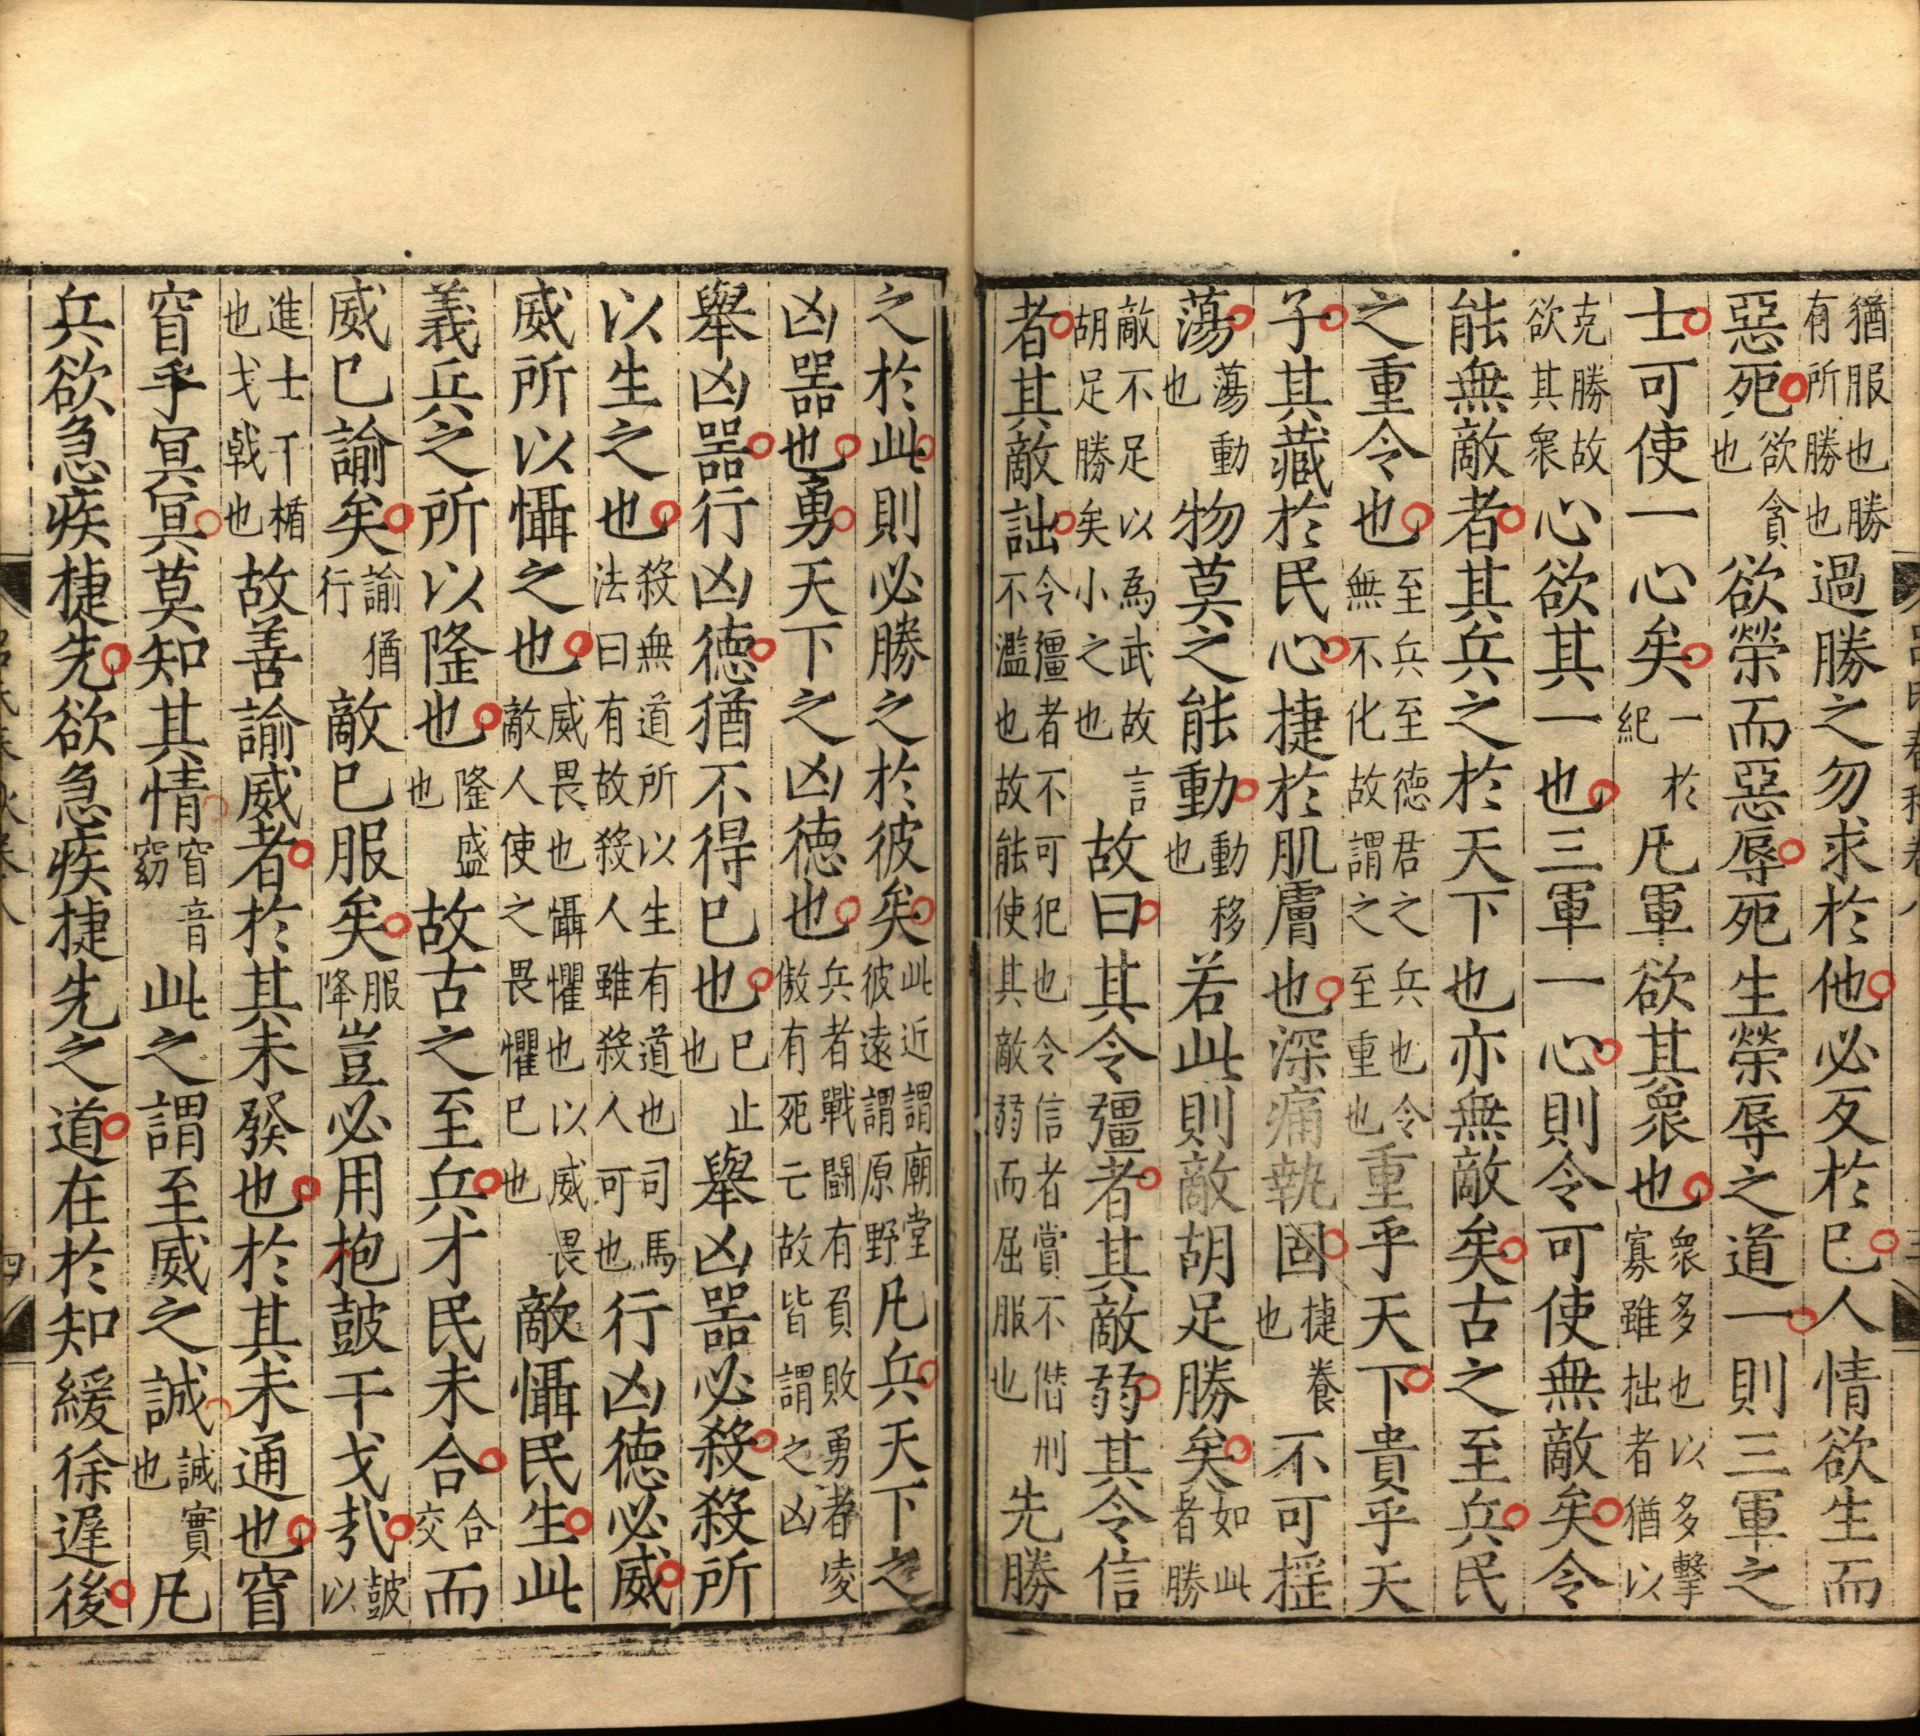 猶服也勝有所勝也過勝之勿求於他必反於己人情欲生而
惡死欲貪也欲榮而惡辱死生榮辱之道一則三軍之
士可使一心矣一於紀凡軍欲其衆也衆多也以多擊寡雖拙者猶以
克勝故欲其衆心欲其一也三軍一心則令可使無敵矣令
能無敵者其兵之於天下也亦無敵矣古之至兵民
之重令也至兵至德君之兵也令無不化故謂之至重也重乎天下貴乎天
子其藏於民心捷於肌膚也深痛執固捷養也不可揺
蕩蕩動也物莫之能動動移也若此則敵胡足勝矣如此者勝
敵不足以為武故言胡足勝矣小之也故曰其令彊者其敵弱其令信
者其敵詘令彊者不可犯也令信者賞不僣刑不濫也故能使其敵弱而屈服也先勝
之於此則必勝之於彼矣此近謂廟堂彼遠謂原野凡兵天下之
凶噐也勇天下之凶德也兵者戰闘有負敗勇者凌傲有死亡故皆謂之凶
舉凶噐行凶德猶不得已也已止也舉凶噐必殺殺所
以生之也殺無道所以生有道也司馬法曰有故殺人雖殺人可也行凶德必威
威所以懾之也威畏也懾懼也以威畏敵人使之畏懼已也敵懾民生此
義兵之所以隆也隆盛也故古之至兵才民未合合交而
威已諭矣諭猶行敵已服矣服降豈必用抱鼓干戈哉鼓以
進士干楯也戈戟也故善諭威者於其未發也於其未通也窅
窅乎冥冥莫知其情窅音窈此之謂至威之誠誠實也凡
兵欲急疾捷先欲急疾捷先之道在於知緩徐遲後